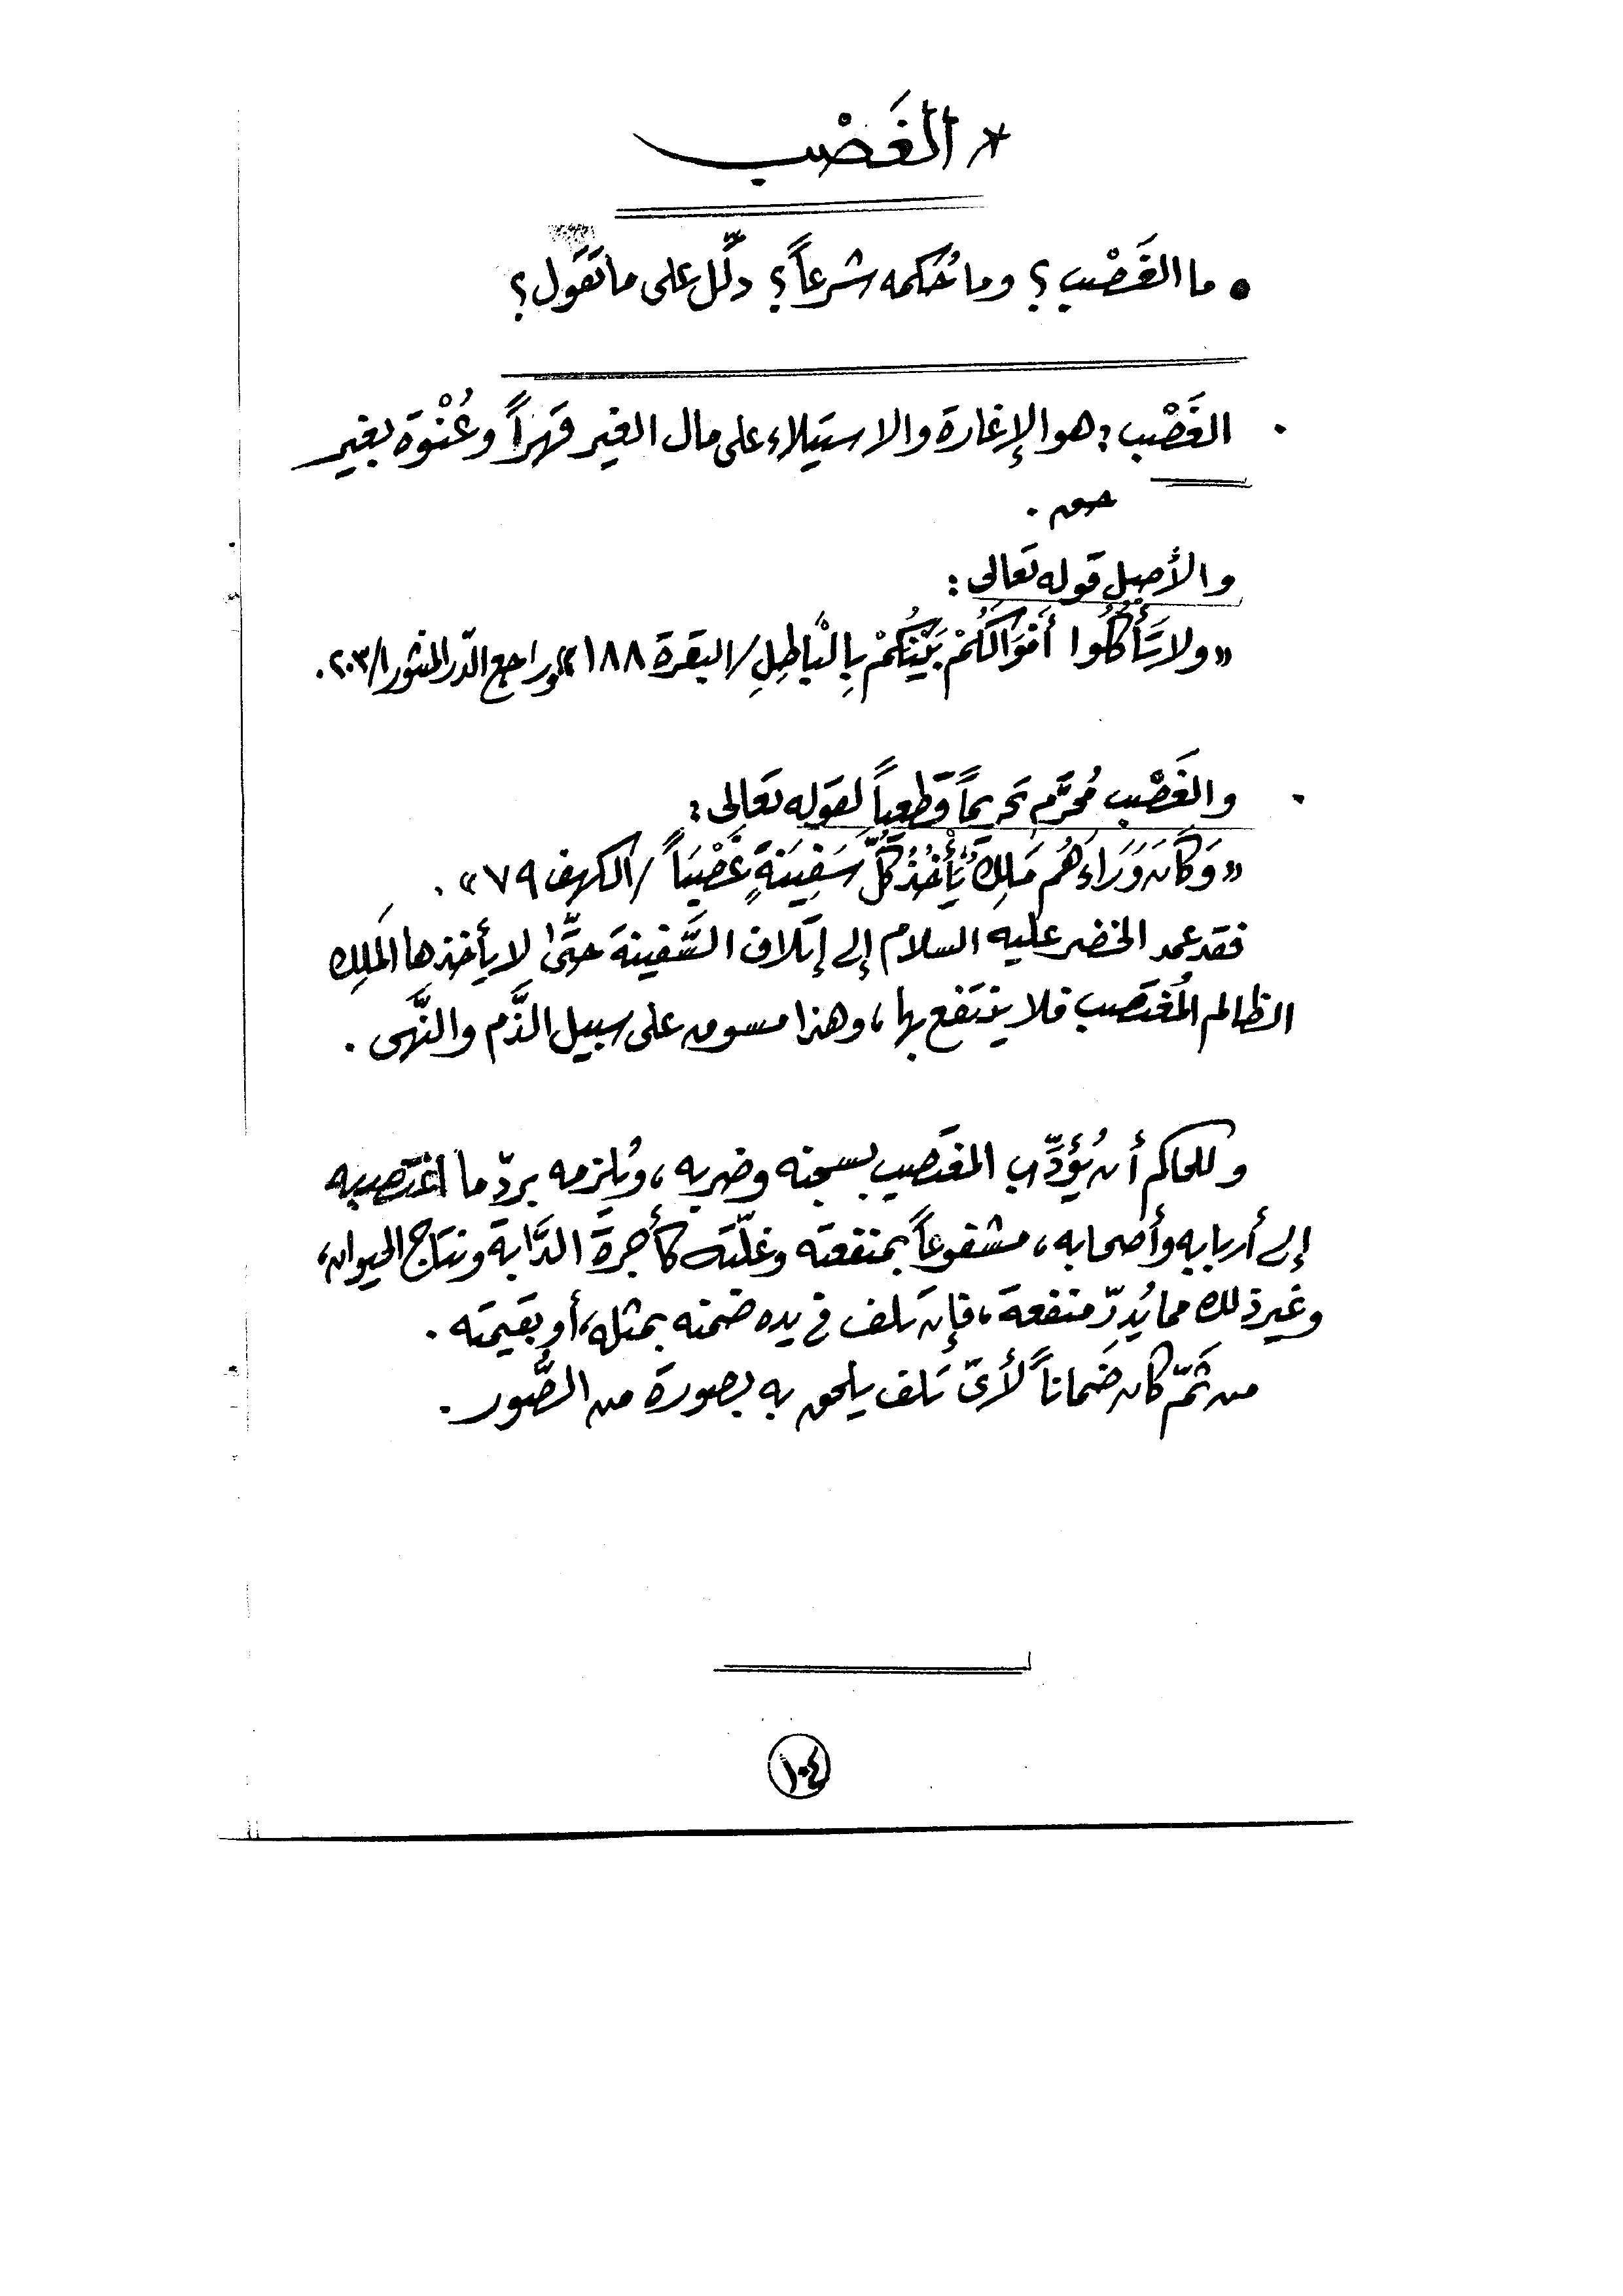 * الغَصْب
• ما الغَصْب؟ وما حُكمه شرعاً؟ دلِّل على ما تَقول؟
. الغَصْب: هو الإغارة والاستيلاء على مال الغير قهراً وعُنْوة بغير
حق.
والأصل قوله تعالى:
«ولا تَأْكُلُوا أَمْوَالَكُمْ بَيْنَكُمْ بِالْبَاطِلِ/البقرة ١٨٨» وراجع الدّر المنثور ٢٠٣/١.
. والغَصْب مُحَرَّم تحريماً قطعياً لقوله تعالى:
«وَكَانَ وَرَاءَهُم مَلِكٌ يَأْخُذُ كُلَّ سَفِينَةٍ غَصْبَاً/الكهف ٧٩».
فقد عمد الخضر عليه السلام إلى إتلاف السَّفينة حتَّى لا يأخذها المَلِك
الظالم المُغتَصب فلا ينتَفع بها، وهذا مسوق على سبيل الذَّم والنَّهى.
وللحاكم أن يُؤَدِّب المغتَصب بسجنه وضربه، ويُلزمه بردّ ما اغتصبه
إلى أربابه وأصحابه، مشفوعاً بمنفعته وغلّته كأجرة الدَّابة ونتاج الحيوان،
وغير ذلك مما يُدِرّ منفعة، فإن تلف في يده ضمنه بمثله، أو بقيمته.
من ثَمّ كان ضَماناً لأىّ تلف يلحق به بصورة من الصُّور.
١٠٤